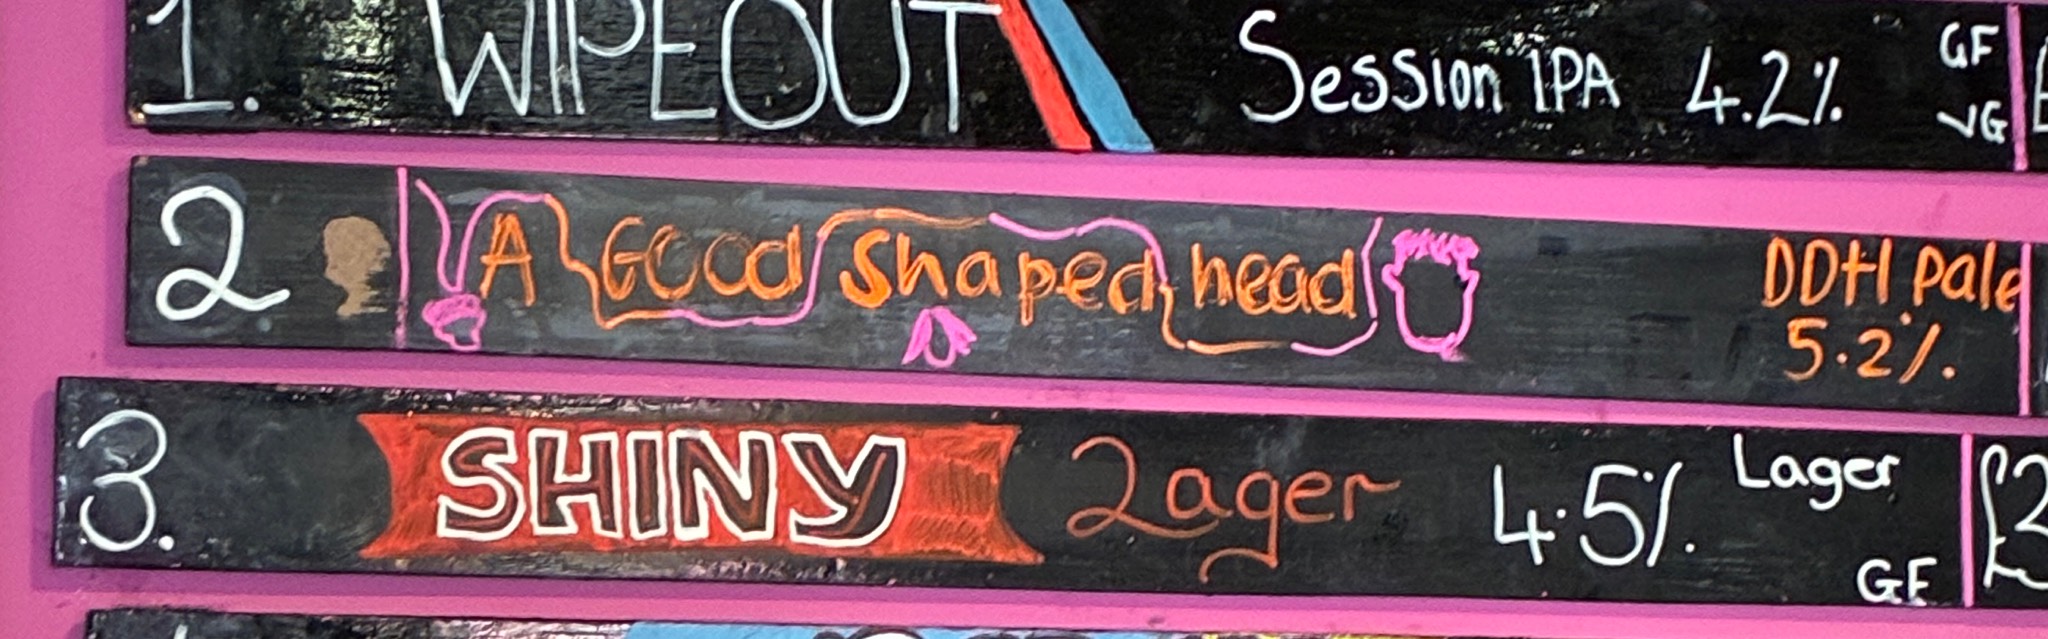 1. WIPEOUT Session IPA 4.2% GF
VG
2 A Good Shaped head DDH Pale
5.2%.
3. SHINY Lager 4.5%. Lager £2
GF